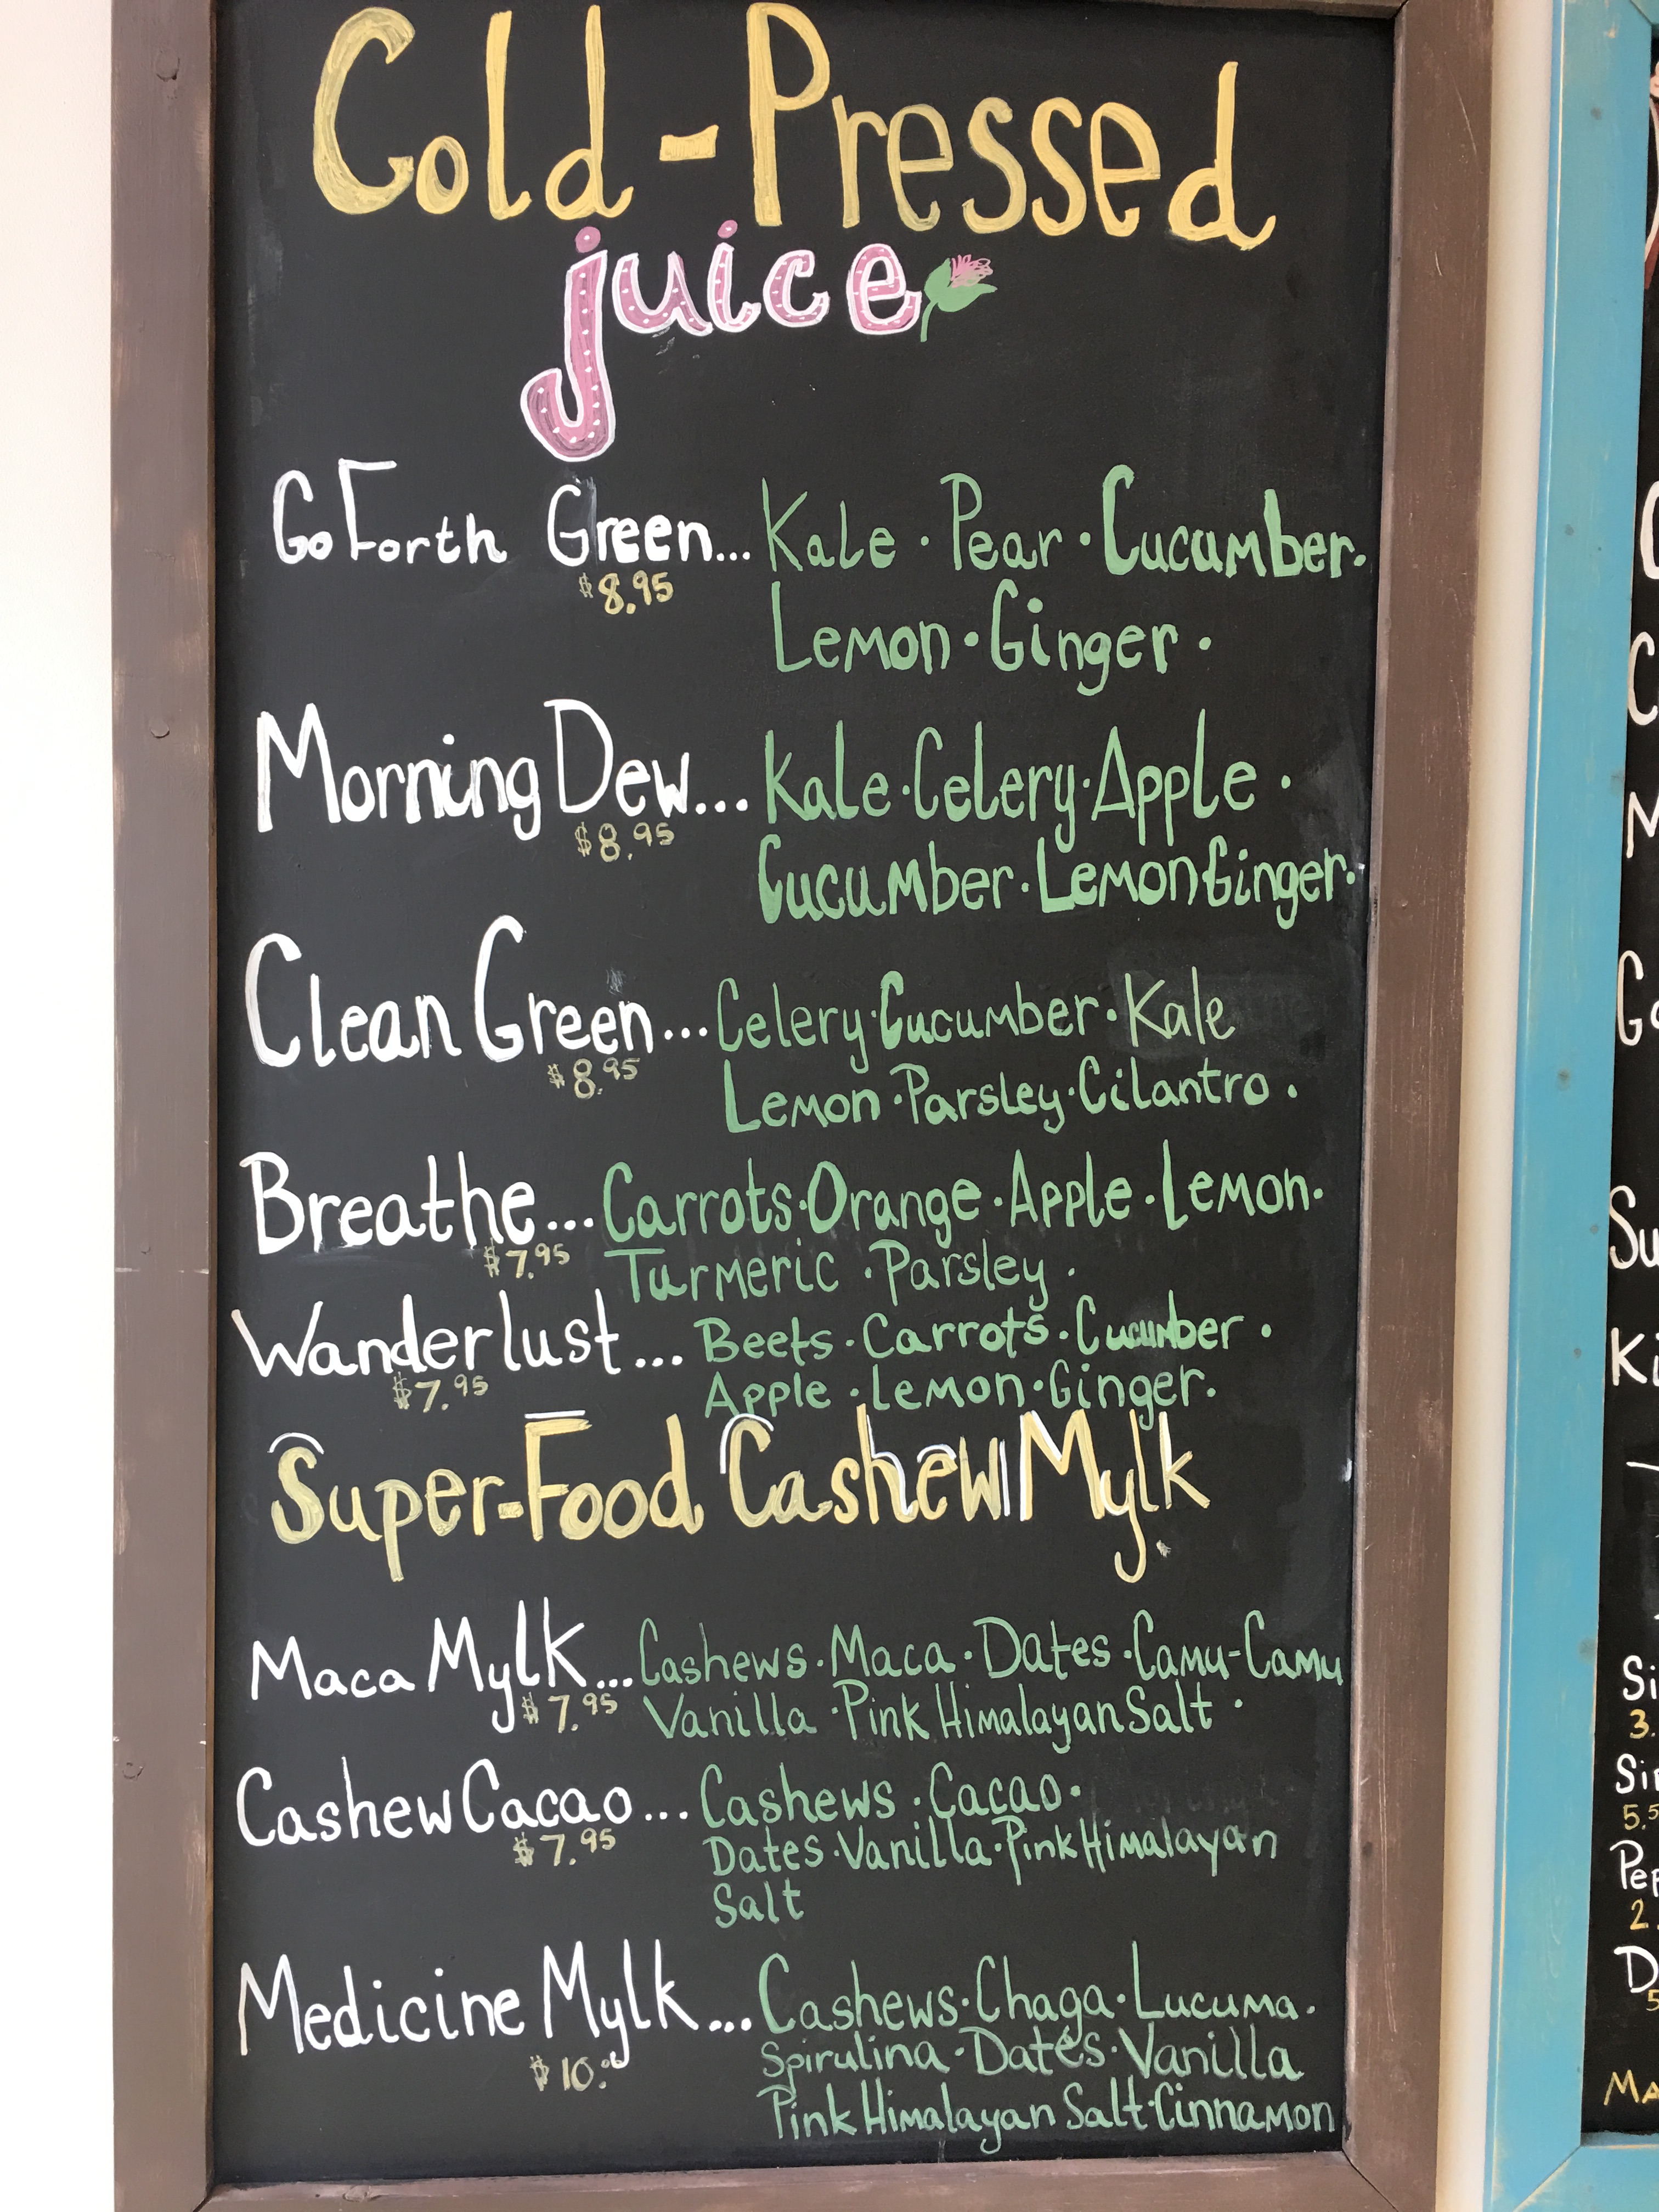 Cold-Pressed
juice
Go Forth Green... Kale · Pear · Cucumber ·
$8.95
Lemon · Ginger ·
Morning Dew... Kale · Celery · Apple ·
$8.95
Cucumber · Lemon Ginger ·
Clean Green... Celery · Cucumber · Kale
$8.95
Lemon · Parsley · Cilantro ·
Breathe... Carrots · Orange · Apple · Lemon ·
$7.95
Turmeric · Parsley ·
Wanderlust... Beets · Carrots · Cucumber ·
$7.95
Apple · Lemon · Ginger ·
Super-Food Cashew Mylk
Maca Mylk... Cashews · Maca · Dates · Camu-Camu
$7.95
Vanilla · Pink Himalayan Salt ·
Cashew Cacao... Cashews · Cacao ·
$7.95
Dates · Vanilla · Pink Himalayan
Salt
Medicine Mylk... Cashews · Chaga · Lucuma ·
$10.00
Spirulina · Dates · Vanilla
Pink Himalayan Salt · Cinnamon